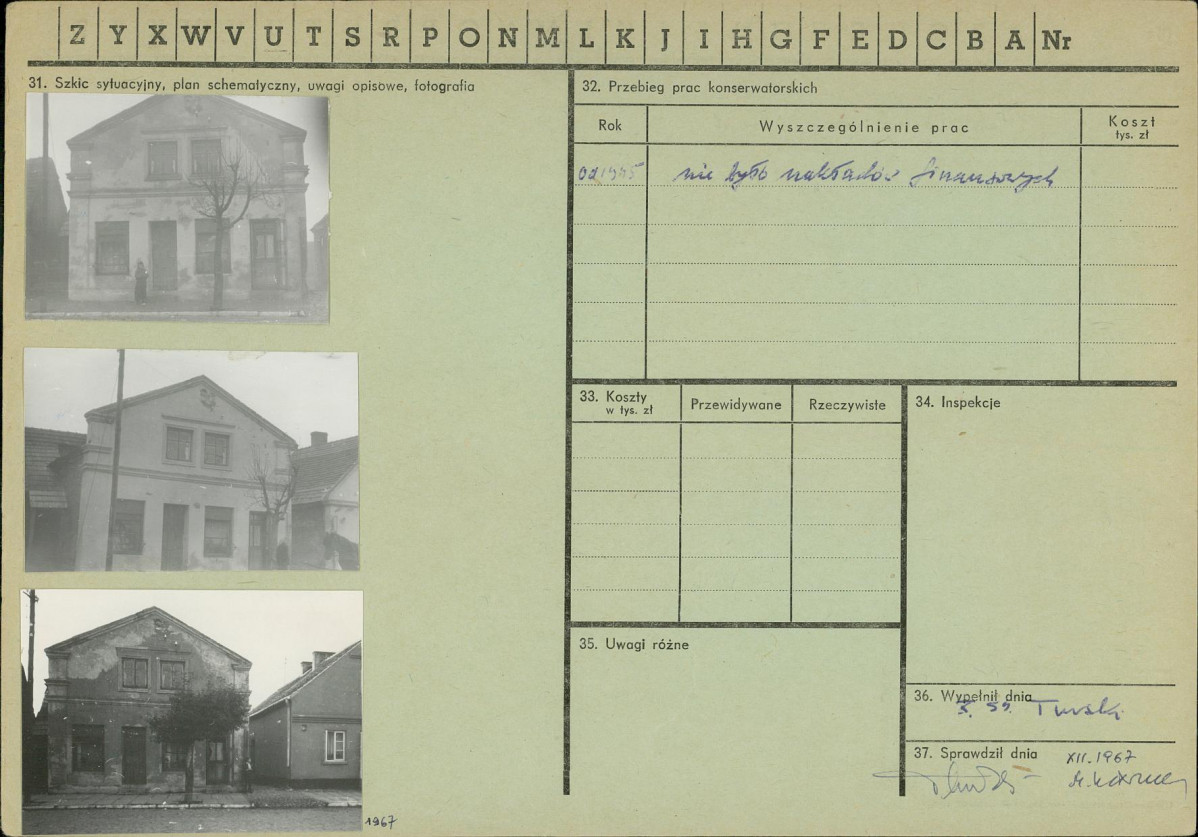 Z Y X W V U T S R P O N M L K J I H G F E D C B A Nr
31. Szkic sytuacyjny, plan schematyczny, uwagi opisowe, fotografia
1967
32. Przebieg prac konserwatorskich
Rok
Wyszczególnienie prac
Koszt
tys. zł
od 1945
nie było nakładów finansowych
33. Koszty
w tys. zł
Przewidywane
Rzeczywiste
34. Inspekcje
35. Uwagi różne
36. Wypełnił dnia
59. Turski
37. Sprawdził dnia
XII. 1967